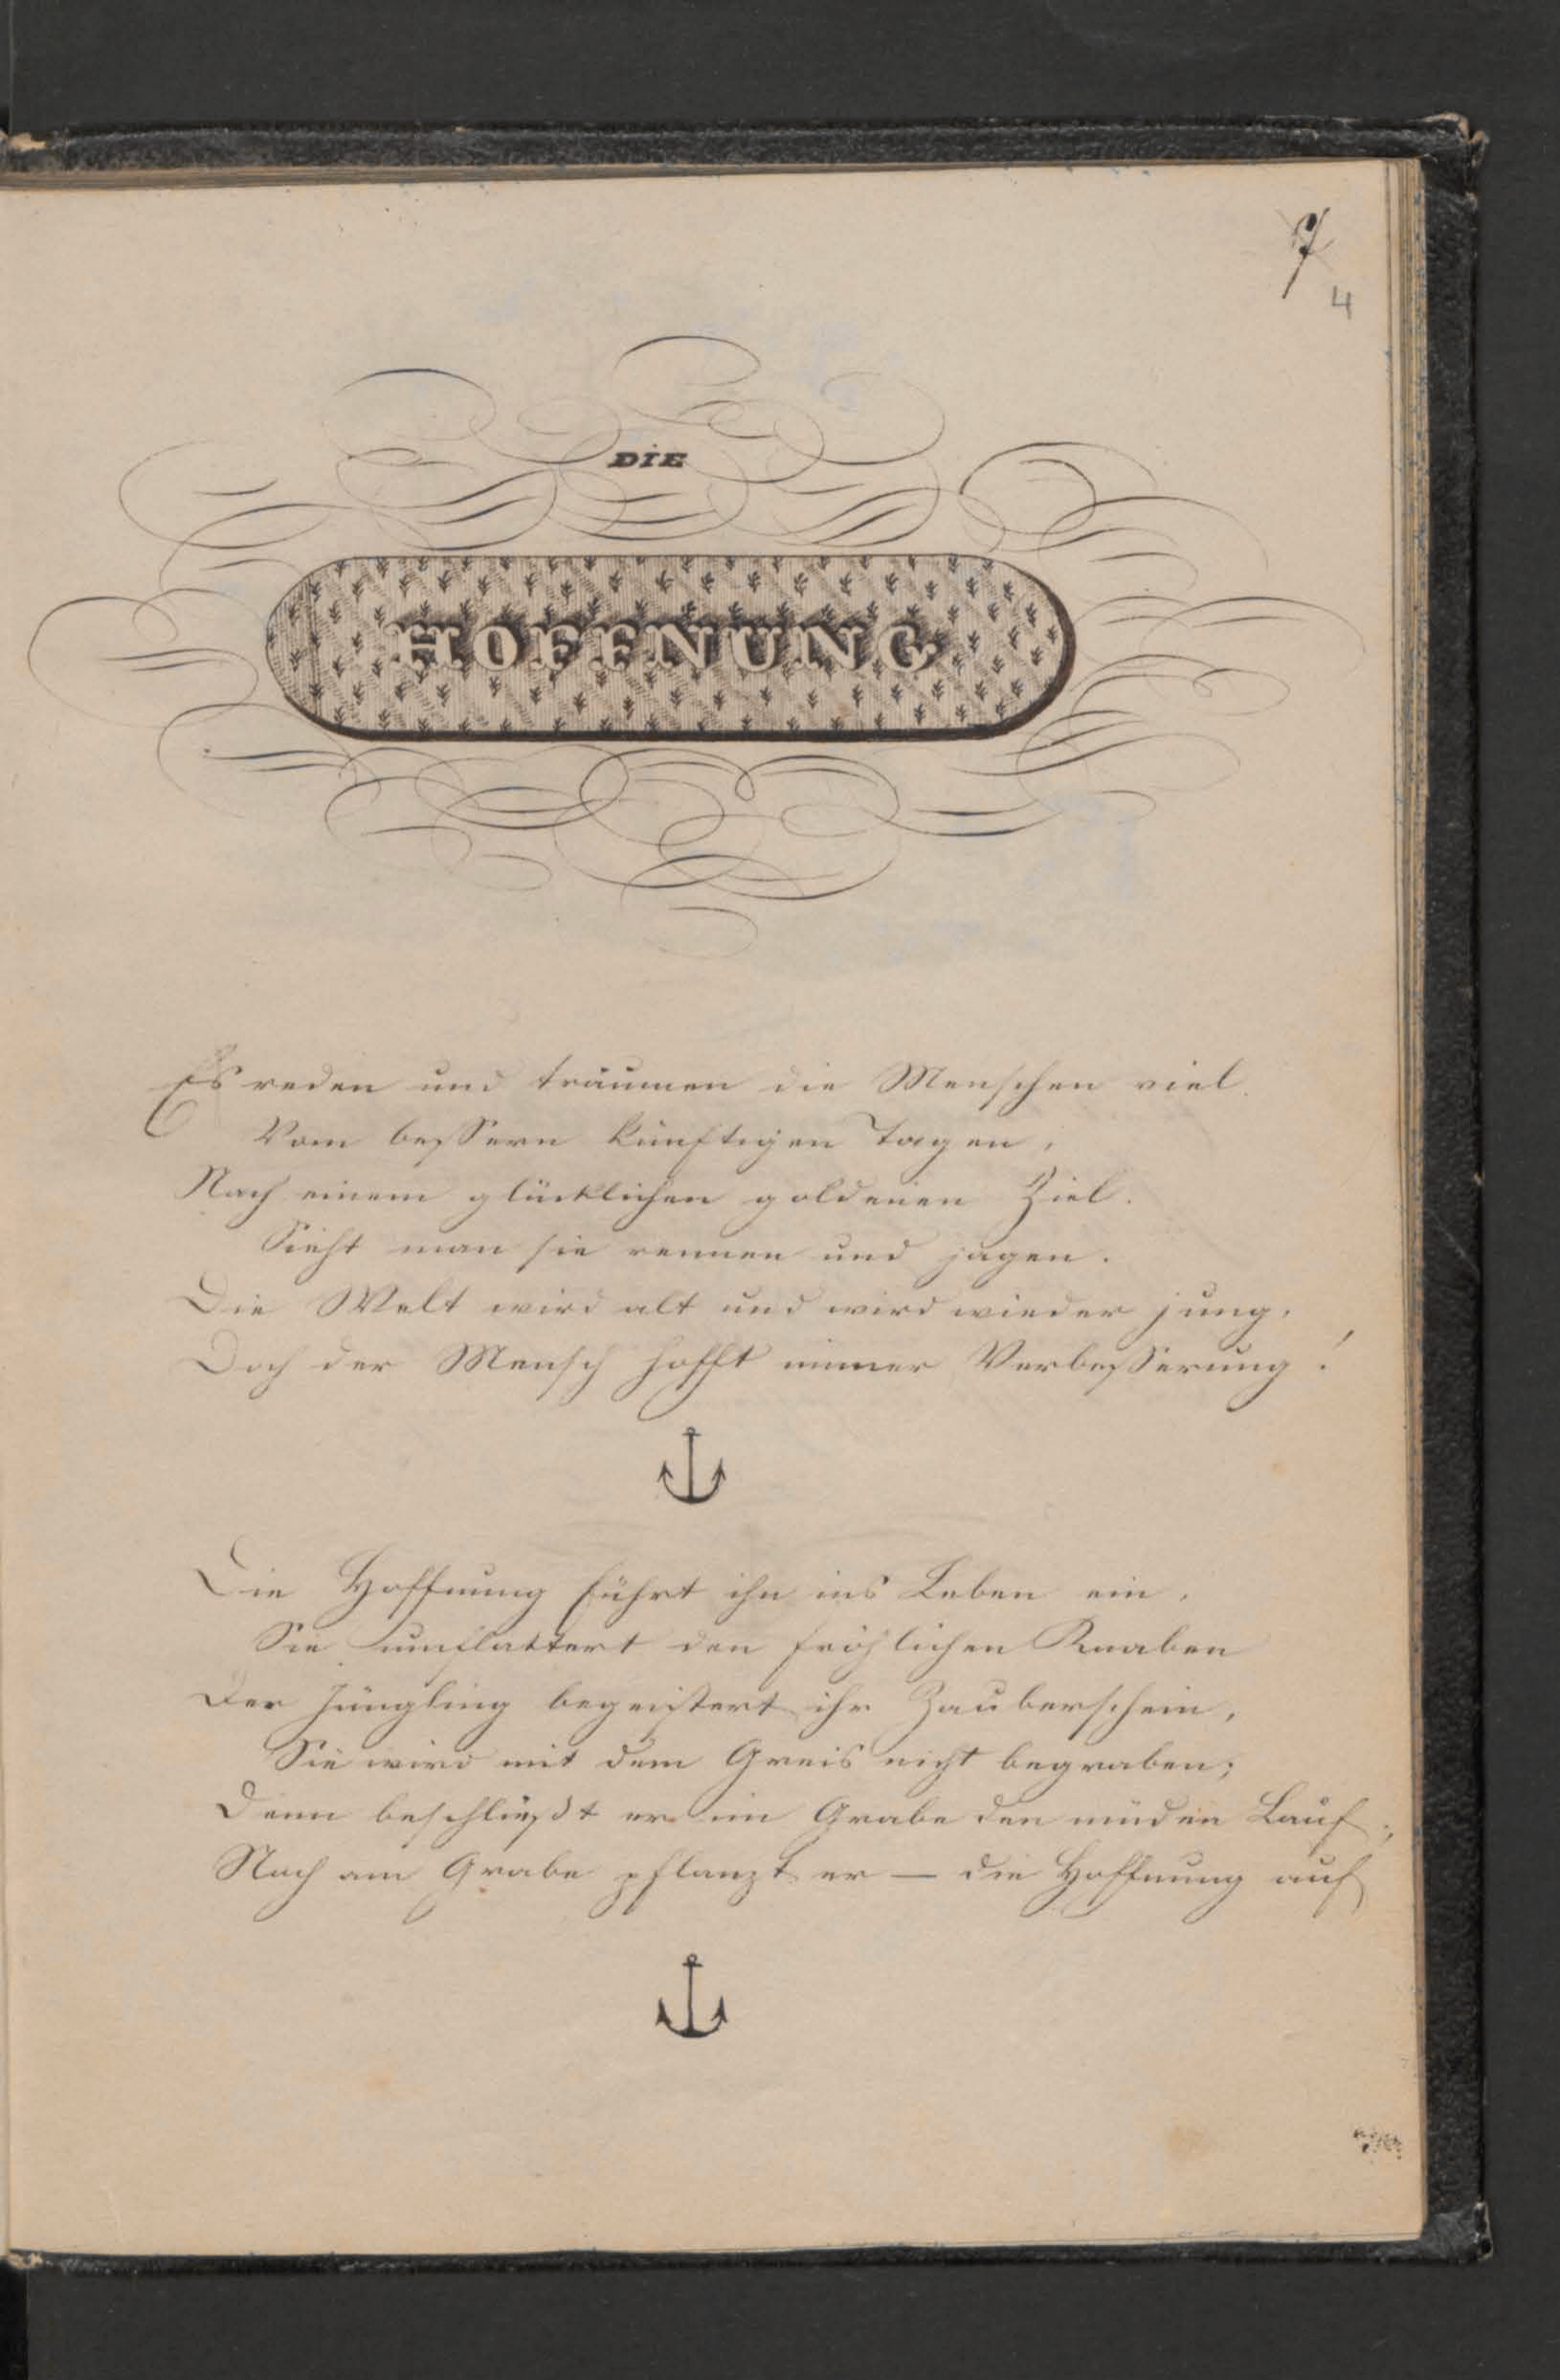 7
4
DIE
HOFFNUNG
Es reden und träumen die Menschen viel
Vom bessern künftigen Tagen,
Nach einem glücklichen goldenen Ziel.
Sieht man sie rennen und jagen.
Die Welt wird alt und wird wieder jung,
Doch der Mensch hofft immer Verbesserung!
Die Hoffnung führt ihn ins Leben ein,
Sie umflattert den fröhlichen Knaben
Der Jüngling begeistert ihr Zauberschein,
Sie wird mit dem Greis nicht begraben;
Denn beschließt er im Grabe den müden Lauf,
Noch am Grabe pflanzt er — die Hoffnung auf